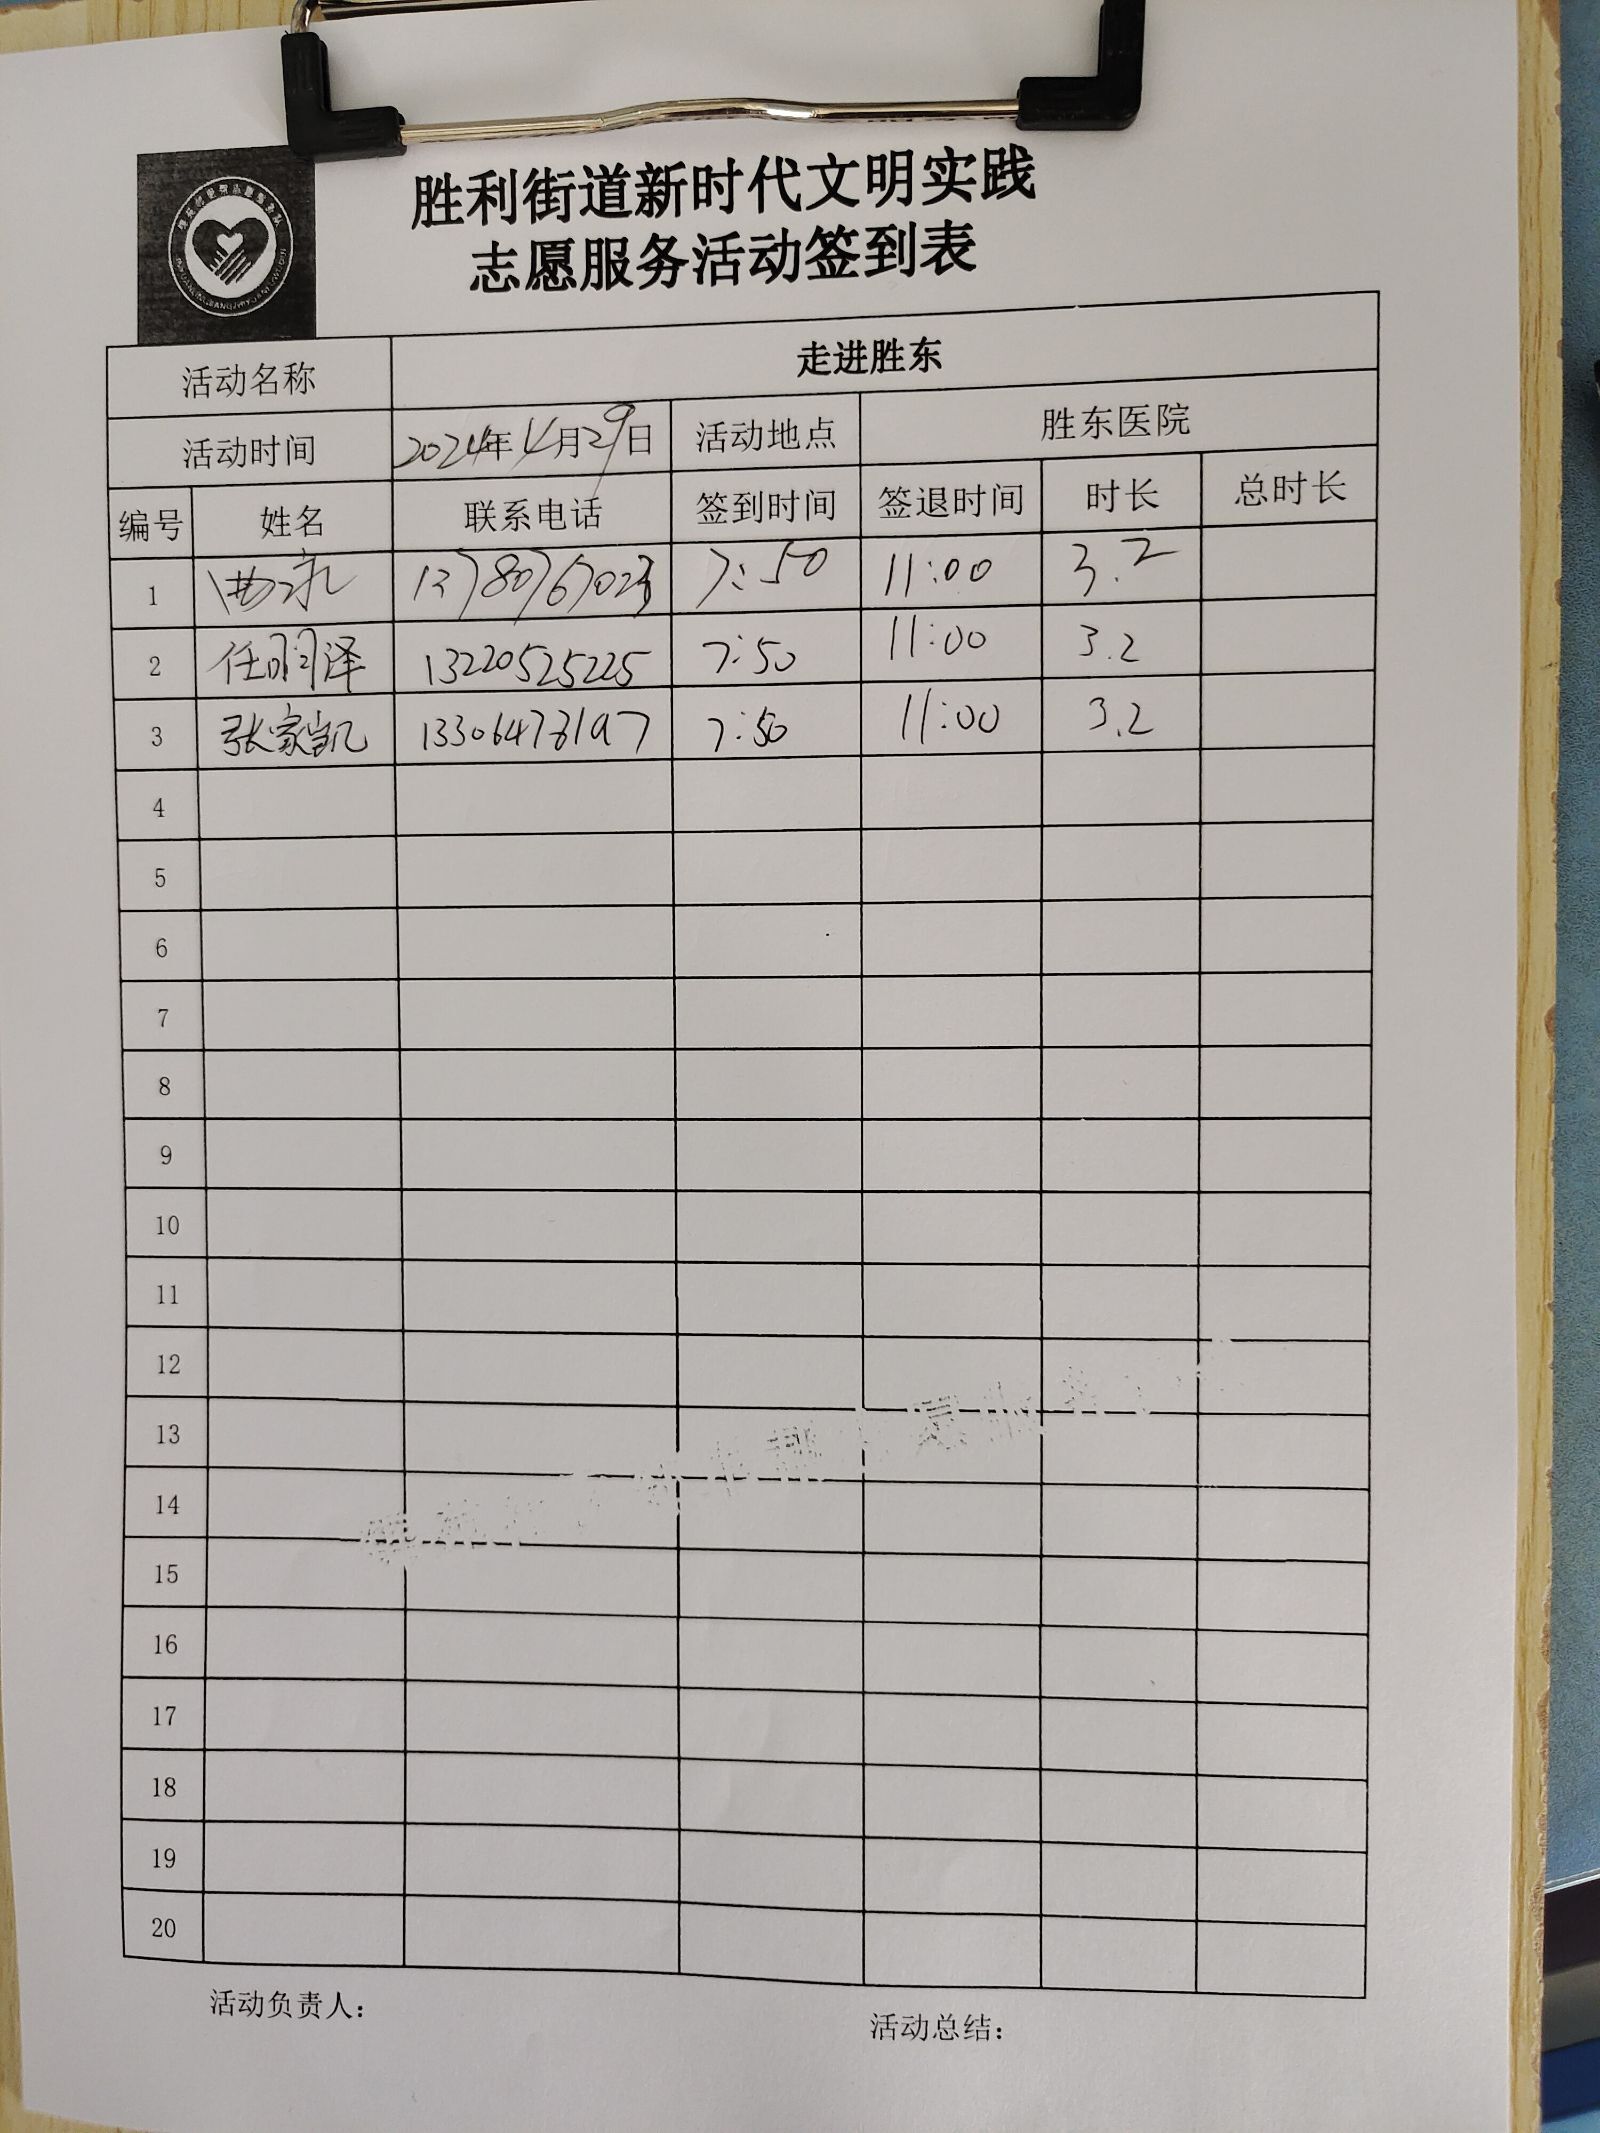 胜利街道新时代文明实践
志愿服务活动签到表
活动名称 走进胜东
活动时间 2024年4月29日 活动地点 胜东医院
编号 姓名 联系电话 签到时间 签退时间 时长 总时长
1 7:50 11:00 3.2
2 任润泽 13220525225 7:50 11:00 3.2
3 张家凯 13306478197 7:50 11:00 3.2
4
5
6
7
8
9
10
11
12
13
14
15
16
17
18
19
20
活动负责人： 活动总结：